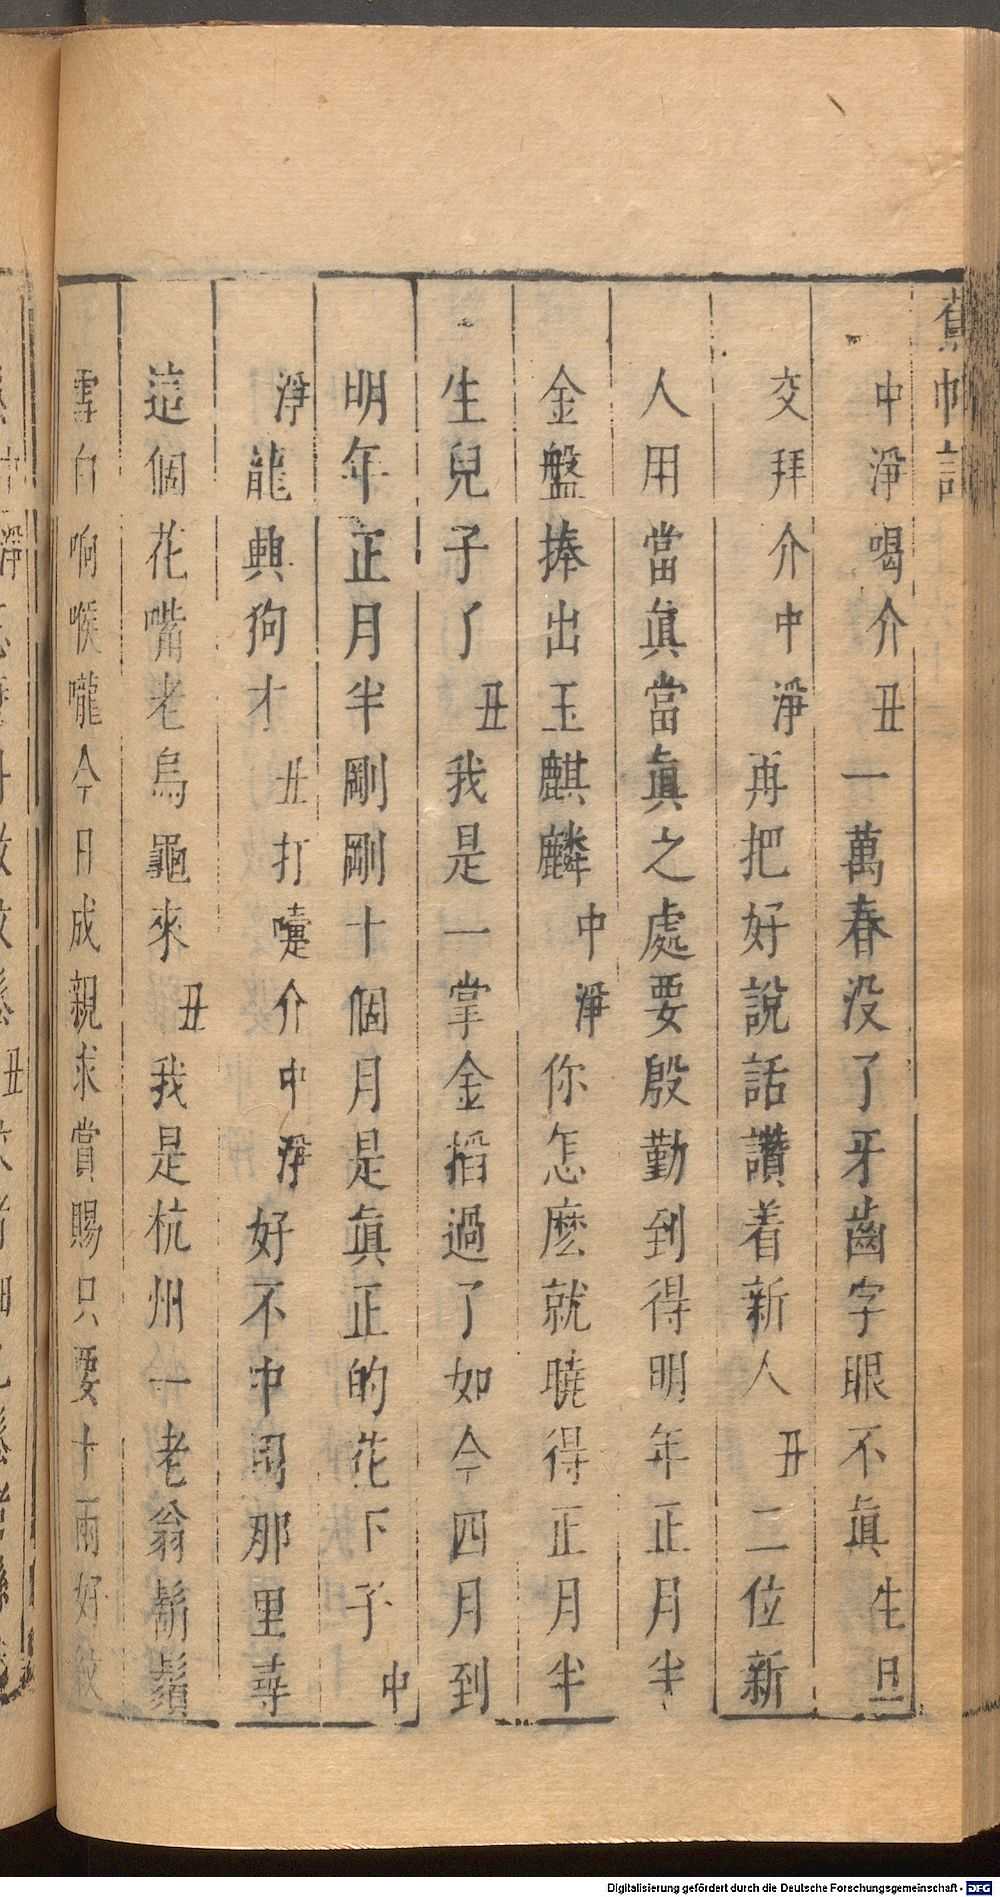 蕉帕記
中淨喝介丑一萬春没了牙齒字眼不眞生旦
交拜介中淨再把好說話讚着新人丑二位新
人用當眞當眞之處要殷勤到得明年正月半
金盤捧出玉麒麟中淨你怎麽就曉得正月半
生兒子了丑我是一掌金搯過了如今四月到
明年正月半剛剛十個月是眞正的花下子中
淨龍興狗才丑打嚏介中淨好不中用那里尋
這個花嘴老烏龜來丑我是杭州一老翁鬍鬚
雪白响喉嚨今日成親求賞賜只要十兩好紋
Digitalisierung gefördert durch die Deutsche Forschungsgemeinschaft - DFG